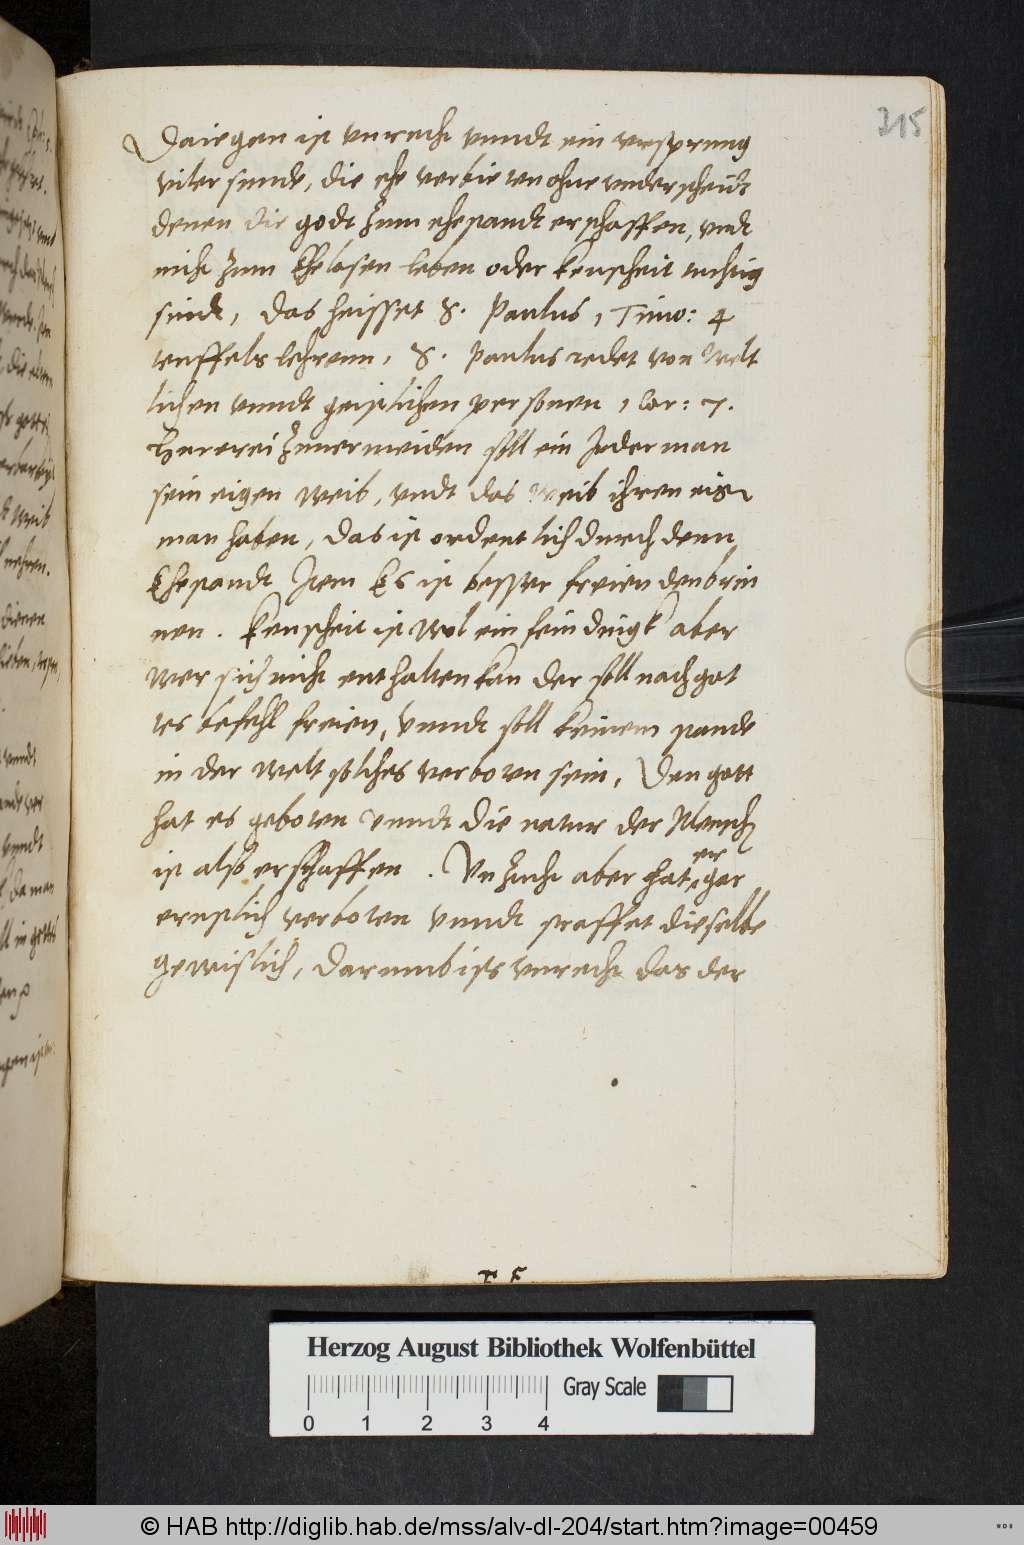 315
Daiegen ist vnrecht vnndt ein vrsprung
viler sunde, die ehe verbieten ohne vnderscheidt
denen die godt zum ehestandt erschaffen, vndt
nicht zum Ehelosen leben oder keuscheit tuchtig
sindt, das heisset S. Paulus 1 Timo: 4
teuffels lehrenn, S. Paulus redet von Welt
lichen vnndt geistlichen personen 1 Cor: 7.
Hurerei zuuermeiden soll ein Jederman
sein eigen weib, vndt das Weib ihren eigen
man haben, das ist ordentlich durch denn
Ehestandt Jtem Es ist besser freien den brin
nen. Keuscheit ist wol ein fein dingk aber
wer sich nicht enthalten kan der soll nach got
tes befehl freien, vnndt soll keinem stande
in der welt solches verboten sein, Den gott
hat es geboten vnndt die natur der Mensch
ist also erschaffen. Vnzucht aber hat er gar
ernstlich verboten vnndt straffet dieselbe
gewislich, darumb ists vnrecht das der
Herzog August Bibliothek Wolfenbüttel
Gray Scale
0 1 2 3 4
© HAB http://diglib.hab.de/mss/alv-dl-204/start.htm?image=00459